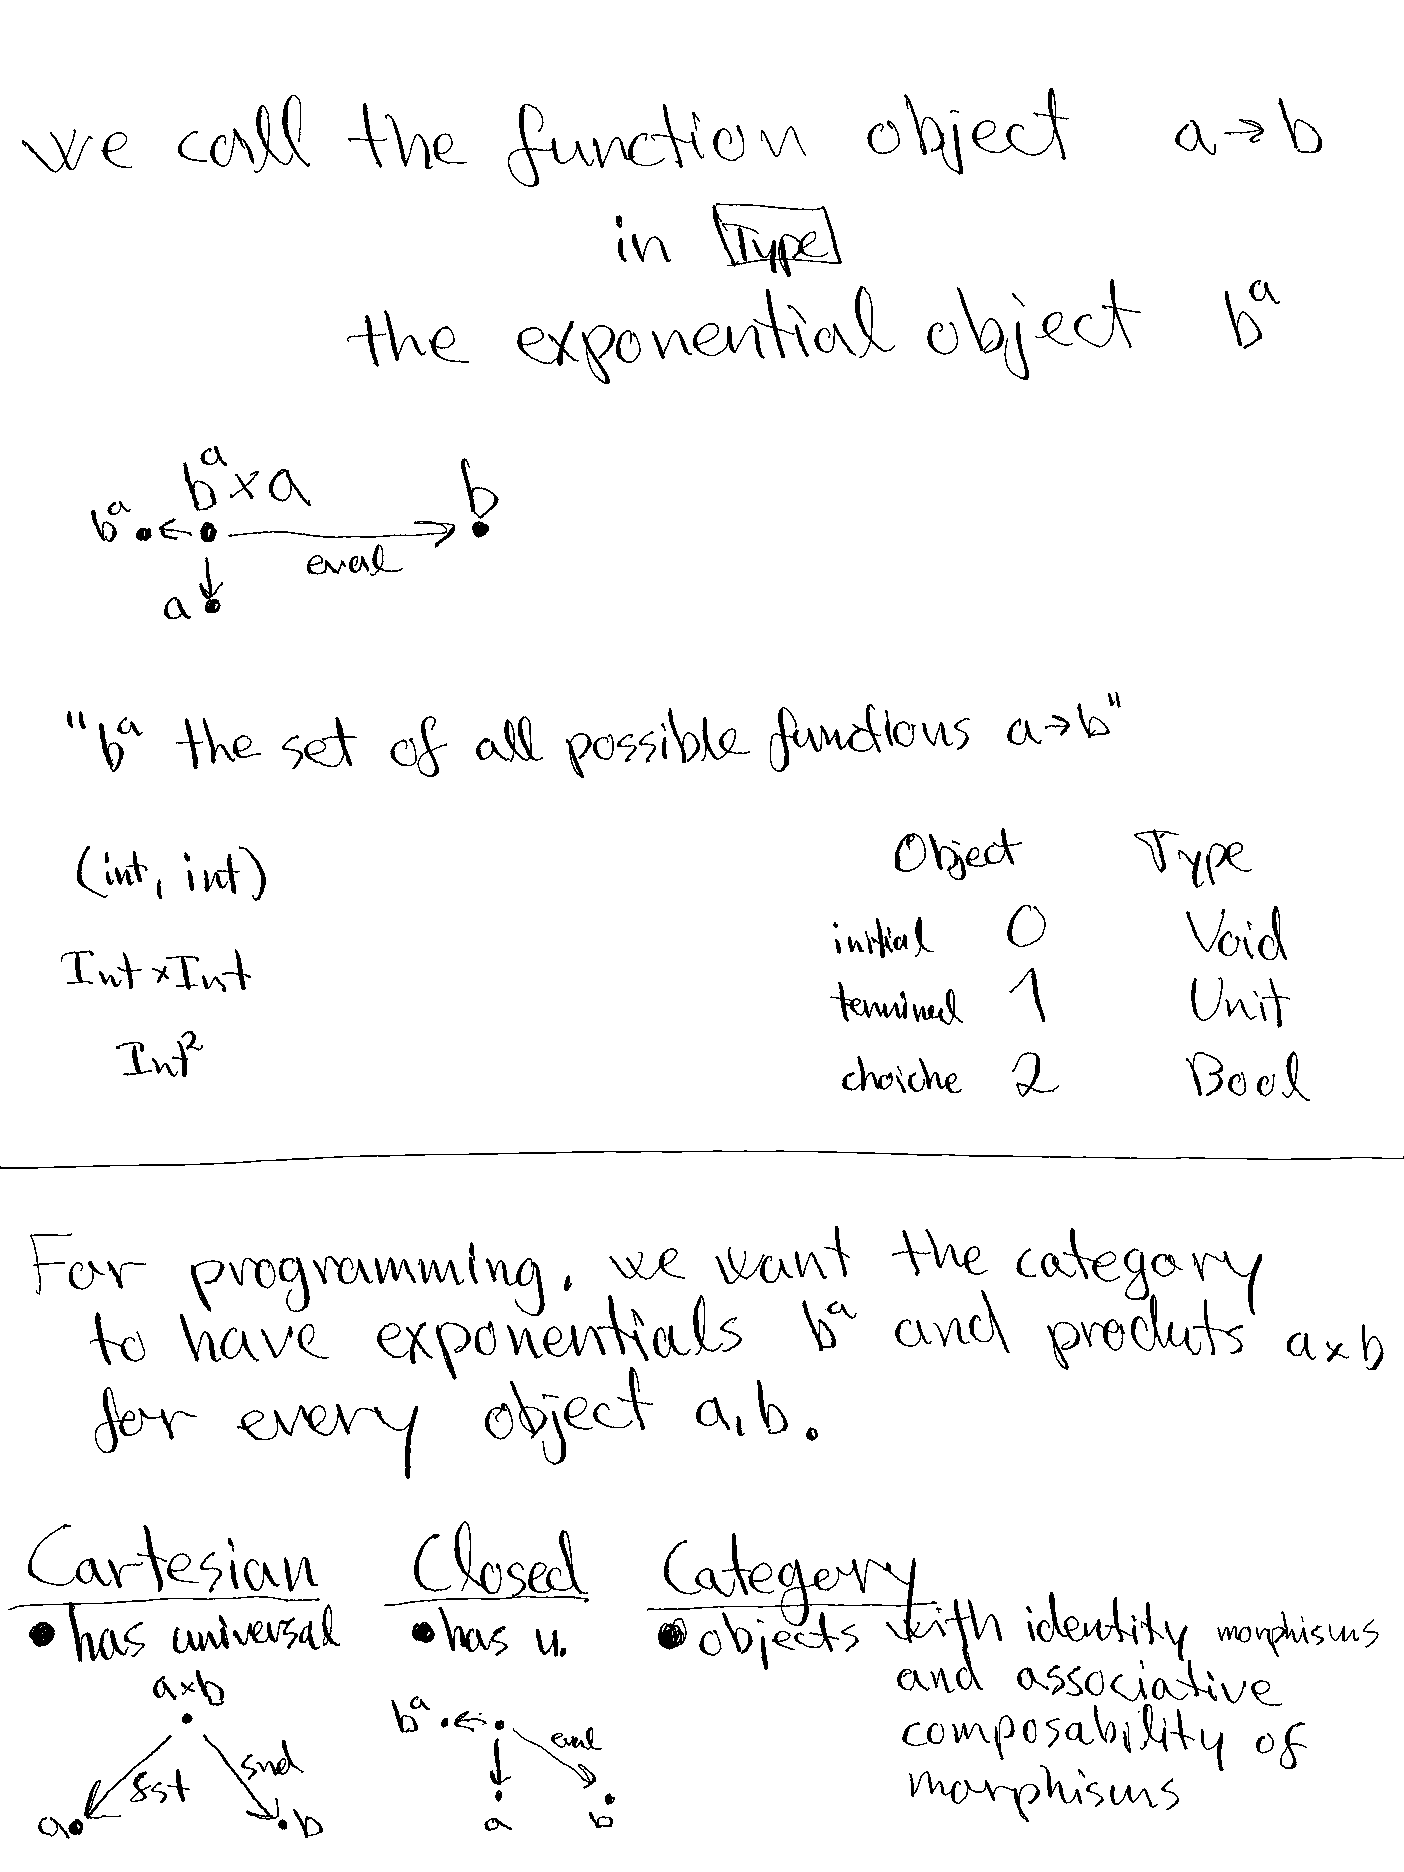 we call the function object a→b
in Type
the exponential object bᵃ
bᵃ×a
b
bᵃ
eval
a
"bᵃ the set of all possible functions a→b"
(int, int)
Int×Int
Int²
Object Type
initial 0 Void
terminal 1 Unit
choiche 2 Bool
For programming, we want the category
to have exponentials bᵃ and produts a×b
for every object a,b.
Cartesian
• has universal
a×b
fst
snd
a
b
Closed
• has u.
bᵃ
eval
a
b
Category
• objects with identity morphisms
and associative
composability of
morphisms